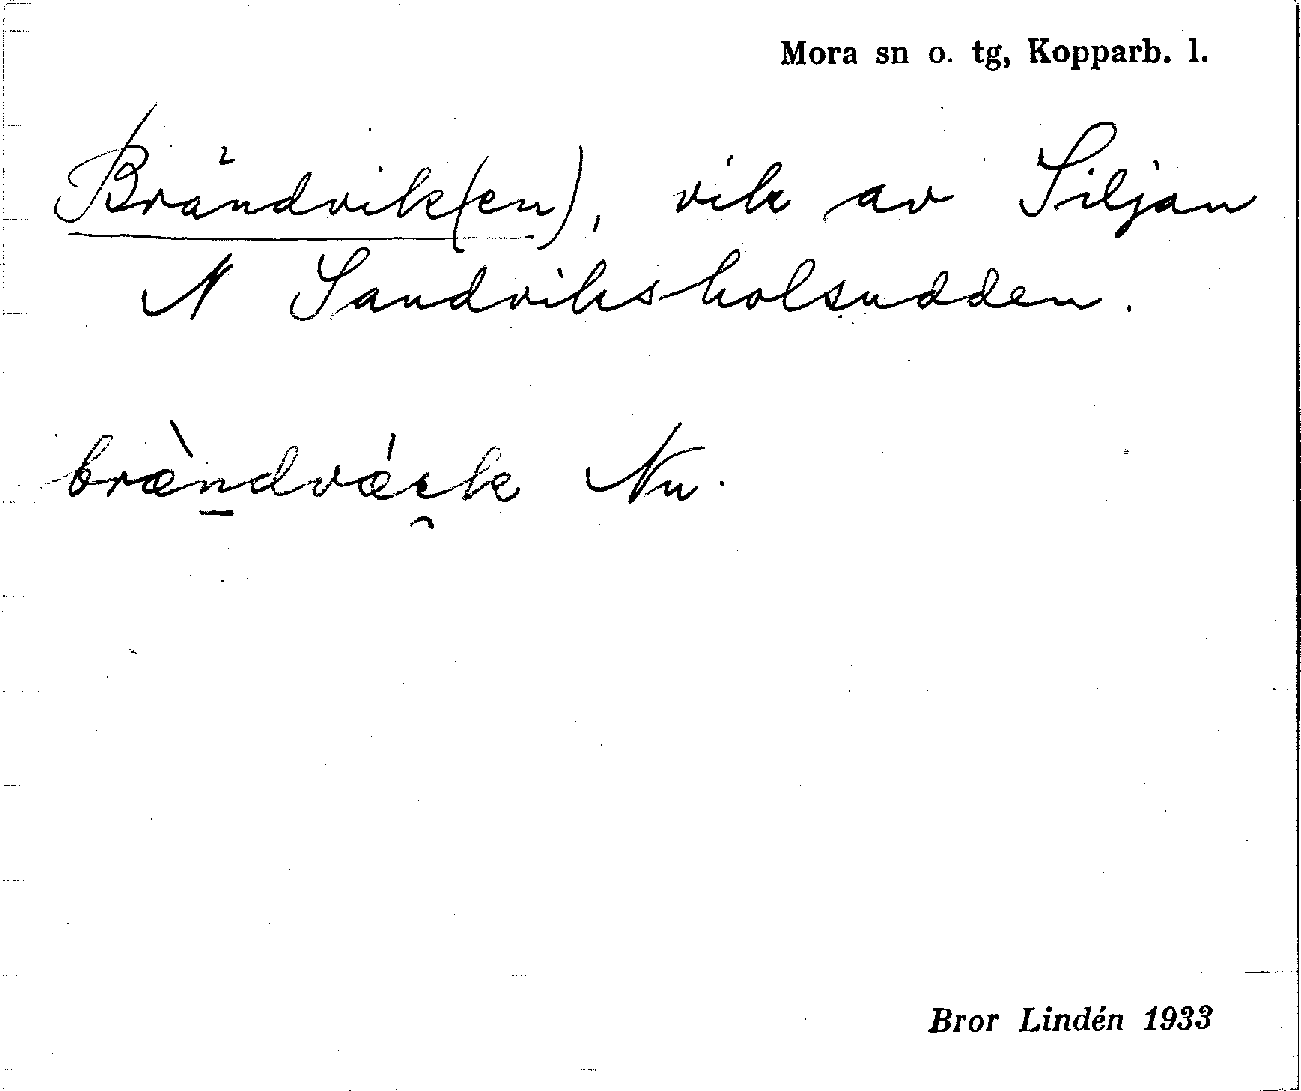 Mora sn o. tg, Kopparb. l.
Brändvik(en), vik av Siljan
N Sandviksholsudden.
bræ̀n̠dvá̠ı̯k Nu.
Bror Lindén 1933